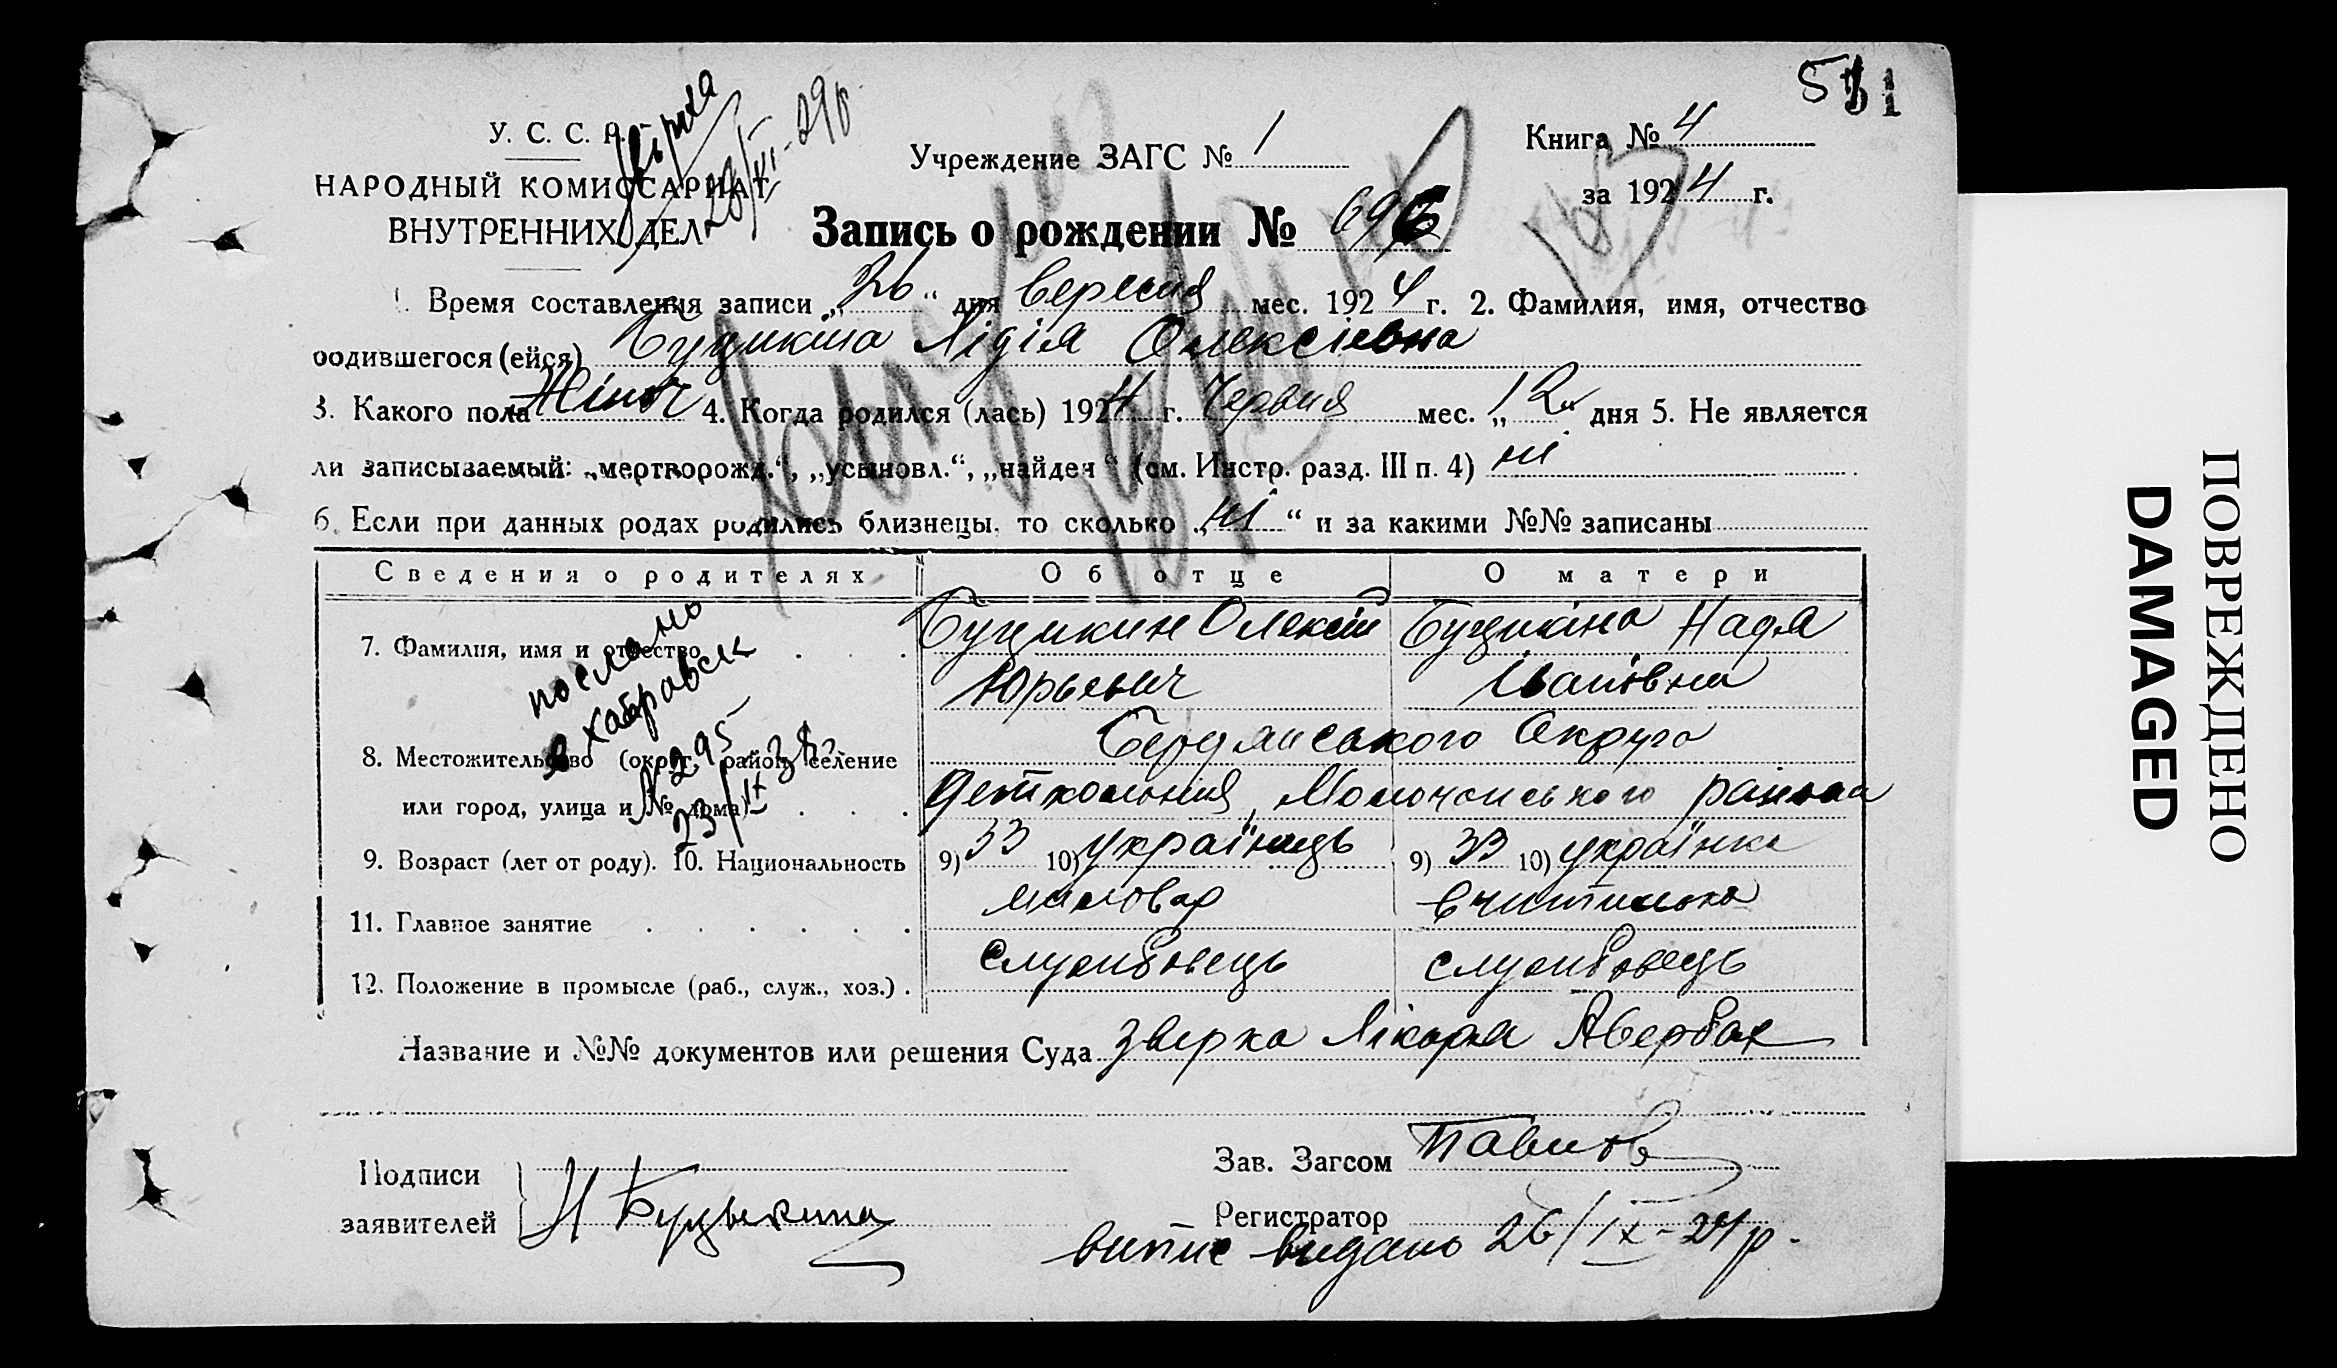 581
У. С. С. Р.
НАРОДНЫЙ КОМИССАРИАТ
ВНУТРЕННИХ ДЕЛ
Учреждение ЗАГС № 1
Книга № 4
за 1924 г.
Запись о рождении № 696
1. Время составления записи „26“ дня вересня мес. 1924 г. 2. Фамилия, имя, отчество
родившегося (ейся) Буцикіна Лідія Олексієвна
3. Какого пола Жіноч 4. Когда родился (лась) 1924 г. Червня мес. „12“ дня 5. Не является
ли записываемый: „мертворожд.“, „усыновл.“, „найден“ (см. Инстр. разд. III п. 4) ні
6. Если при данных родах родились близнецы, то сколько „ні“ и за какими №№ записаны
Сведения о родителях Об отце О матери
7. Фамилия, имя и отчество Буцикин Олексій Буцикіна Надя
Юрьевич Івановна
послано
в Хабровськ
№ 295
23/II 38
8. Местожительство (округ, район, селение Бердянського Округа
или город, улица и № дома) Детколонія, Молочанського района
9. Возраст (лет от роду). 10. Национальность 9) 33 10) українець 9) 33 10) українка
11. Главное занятие миловар вчителька
12. Положение в промысле (раб., служ., хоз.) службовець службовець
Название и №№ документов или решения Суда зверка Лікаря Авербах
Подписи
заявителей Н Буцыкина
Зав. Загсом Павлов
Регистратор
випис видано 26/IX-24 р.
ПОВРЕЖДЕНО
DAMAGED